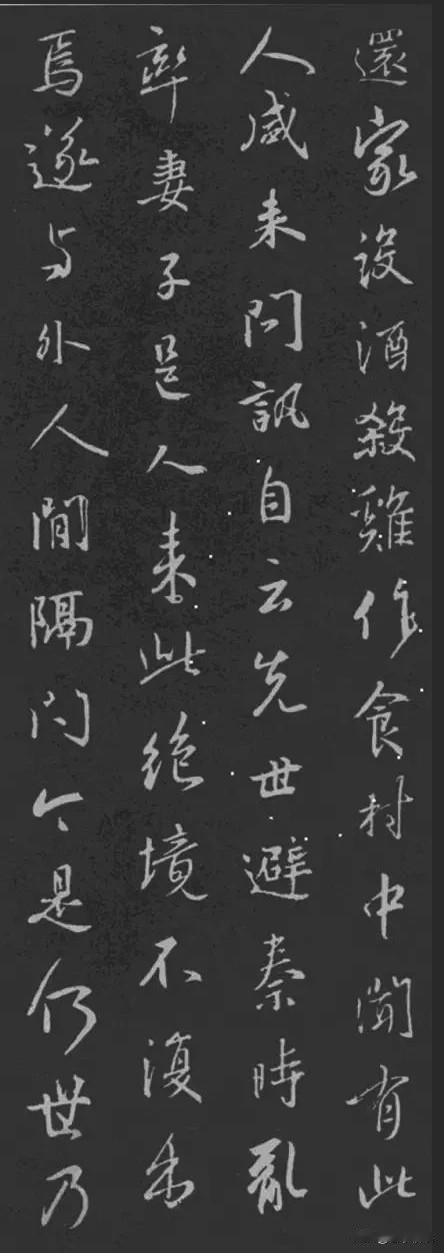 還家設酒殺雞作食村中聞有此
人咸来問訊自云先世避秦時亂
率妻子邑人来此絶境不復出
焉遂与外人間隔問今是何世乃